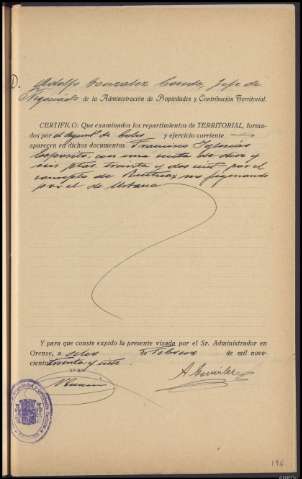 D. Adolfo Gonzalez, Jefe de
Negociado de la Administración de Propiedades y Contribución Territorial.
CERTIFICO: Que examinados los repartimientos de TERRITORIAL, forma-
dos por el Ayunt.º de y ejercicio corriente
aparece en dichos documentos Francisco Iglesias
Exposito, con una cuota de dos y
seis ptas treinta y dos cent. por el
concepto de Rustica, no figurando
por el de Urbana
Y para que conste expido la presente visada por el Sr. Administrador en
Orense, a de Febrero de mil nove-
cientos treinta y siete.
A. Gonzalez
196